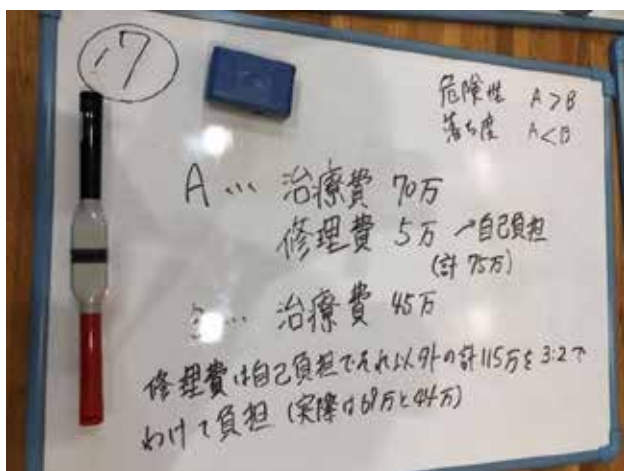 17
危険性 A>B
落ち度 A<B
A… 治療費 70万
修理費 5万 →自己負担
(計 75万)
… 治療費 45万
修理費は自己負担でそれ以外の計115万を3:2で
わけて負担(実際は68万と44万)